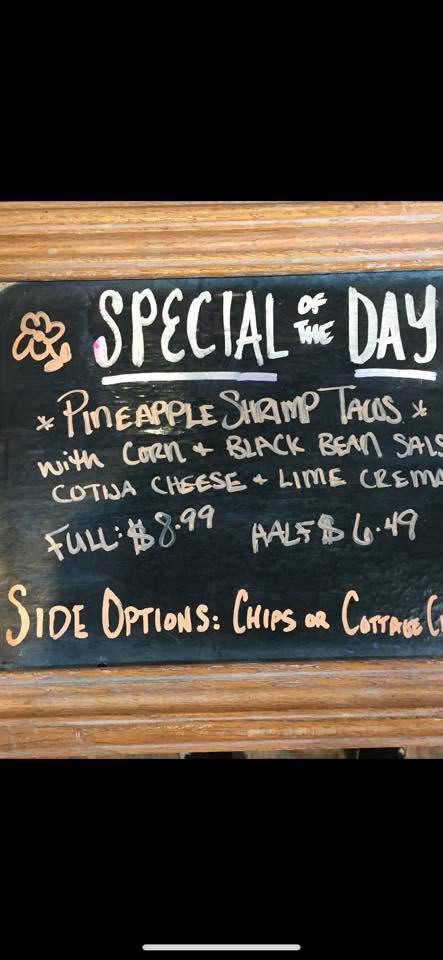 SPECIAL OF THE DAY
* PINEAPPLE SHRIMP TACOS *
with CORN + BLACK BEAN SALS
COTIJA CHEESE + LIME CREMA
FULL: $8.99 HALF $6.49
SIDE OPTIONS: CHIPS OR COTTAGE C